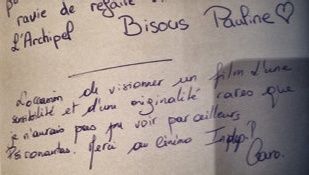 ravie de refaire
L'Archipel Bisous Pauline ♡
L'occasion de visionner un film d'une
sensibilité et d'une originalité rares que
je n'aurais pas pu voir par ailleurs
Merci au cinéma Indép.!
Caro.